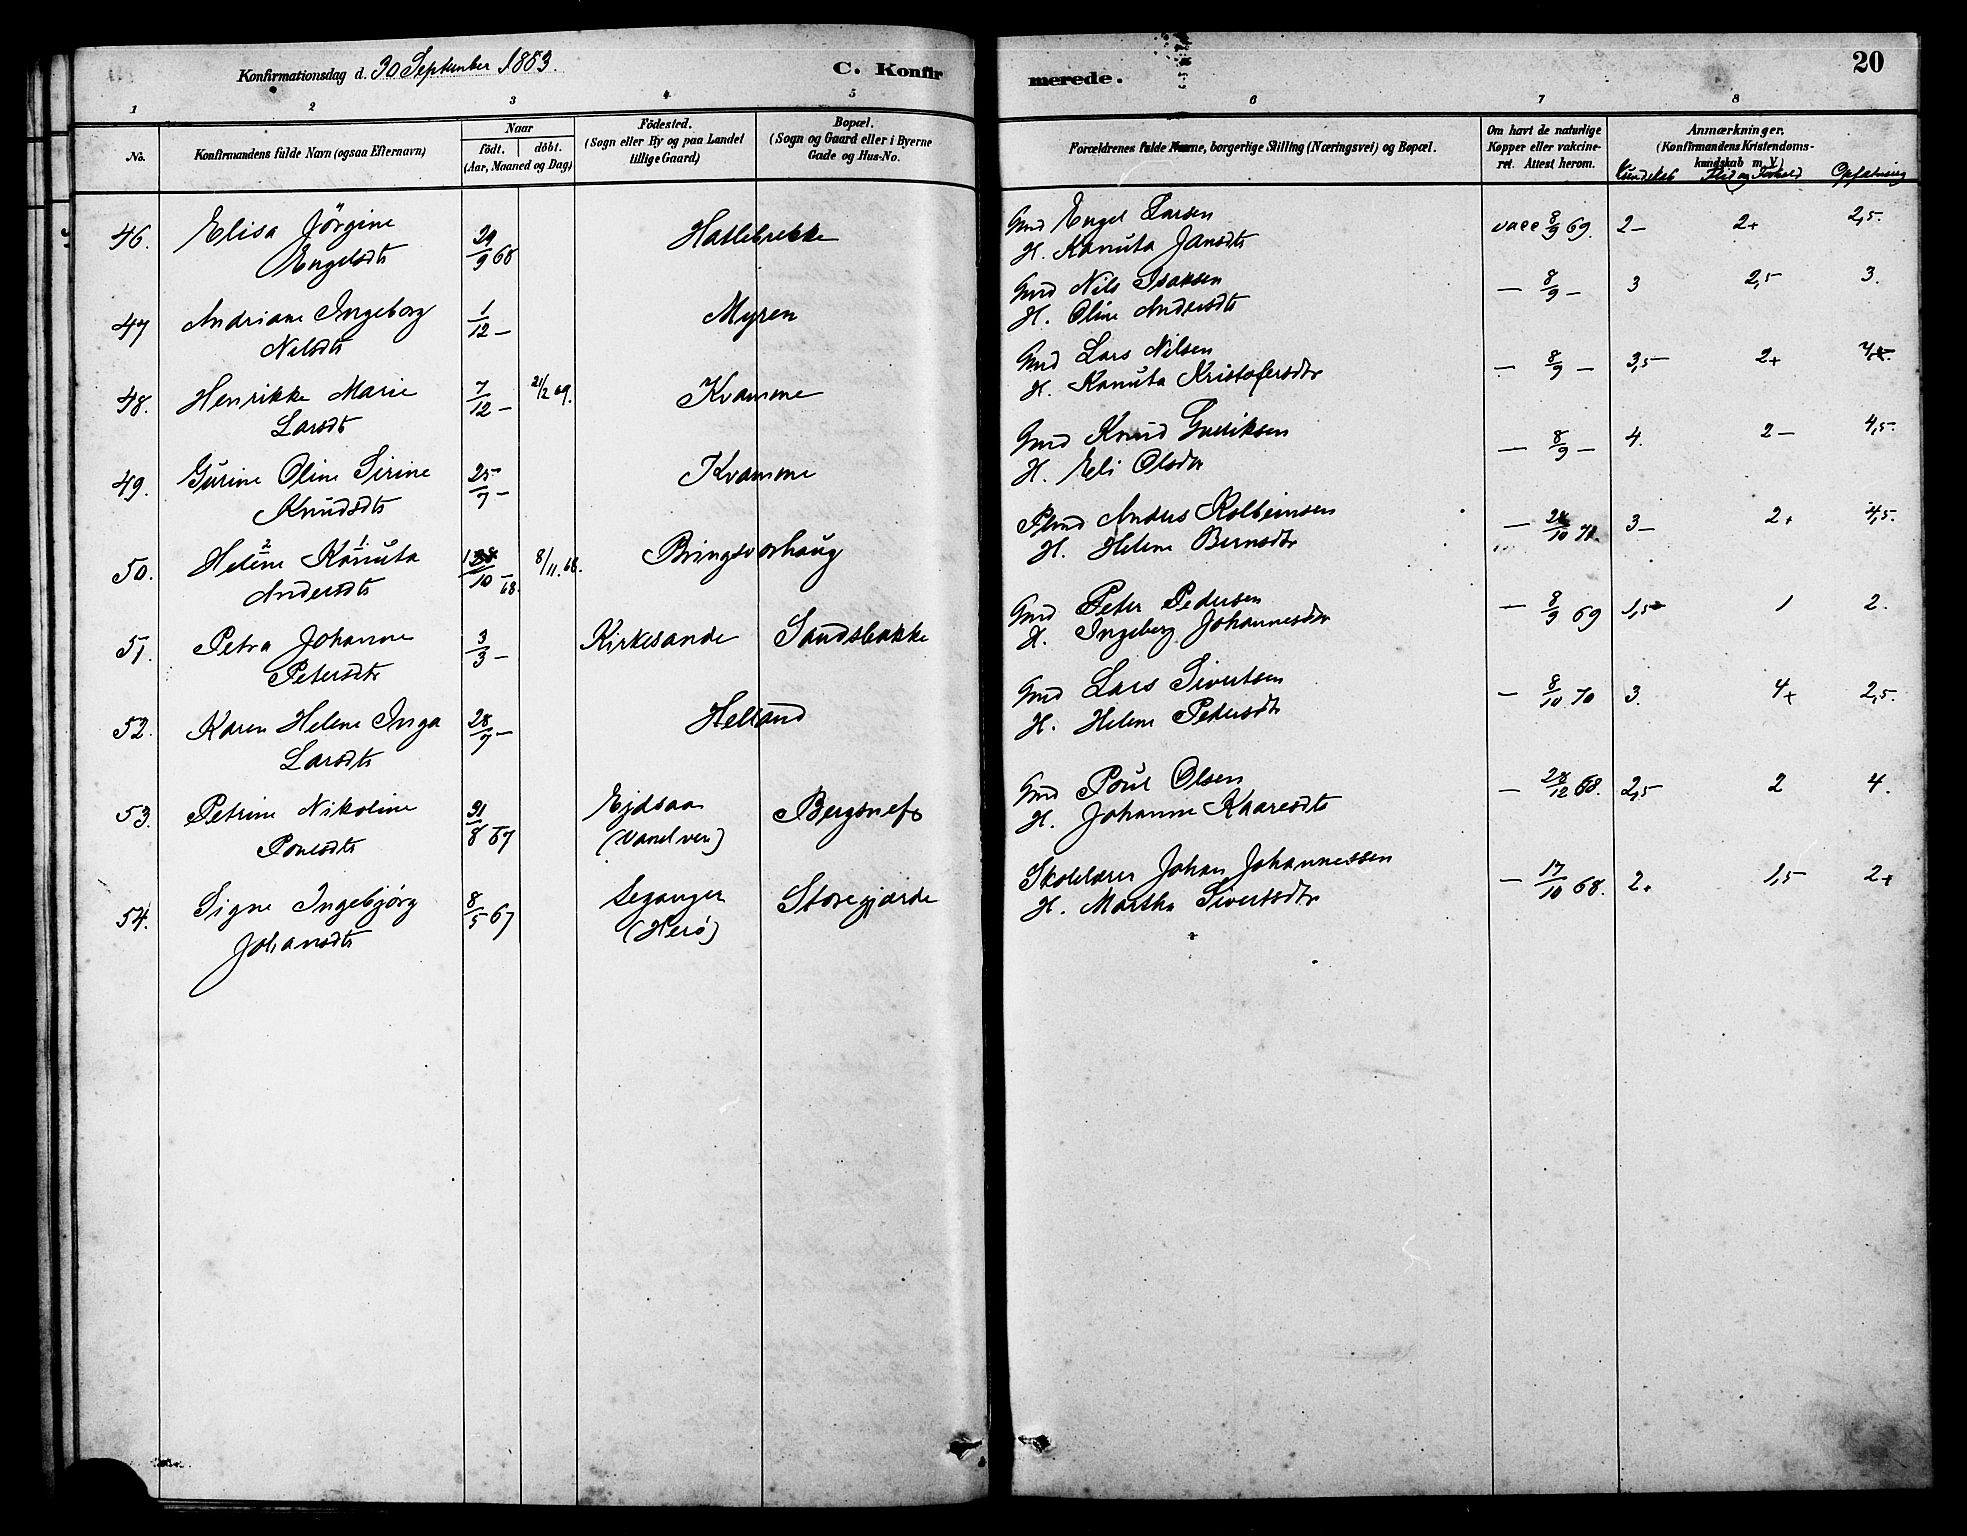 Konfirmationsdag d. 30 September 1883.
C. Konfirmerede.
20
1 2 3 4 5 6 7 8
No.
Konfirmandens fulde Navn (ogsaa Efternavn)
Naar
födt. döbt.
(Aar, Maaned og Dag)
Födested.
(Sogn eller By og paa Landet
tillige Gaard)
Bopæl.
(Sogn og Gaard eller i Byerne
Gade og Hus-No.
Forældrenes fulde Navne, borgerlige Stilling (Næringsvei) og Bopæl.
Om havt de naturlige
Kopper eller vakcine-
ret. Attest herom.
Anmærkninger.
(Konfirmandens Kristendoms-
kundskab m. V.)
Kundskab Flid og Forhold Opfatning
46. Elisa Jörgine 29/9 68 Hatlebrekke Gmd Engel Larsen vacc 8/9 69. 2- 2+ 2,5.
Engelsdtr H. Kanuta Jansdtr
47 Andriane Ingeborg 1/12 - Myren Gmd Nils Isaksen - 8/9 - 3 2,5 3.
Nilsdtr H. Oline Andersdtr
48. Henrikke Marie 7/12 - 21/2 69. Kvamme Gmd Lars Nilsen - 8/9 - 3,5 2+
Larsdtr H. Kanuta Kristofersdtr
49. Gurine Oline Sirine 25/9 - Kvamme Gmd Knud Guriksen - 8/9 - 4. 2- 4,5.
Knudsdtr H. Eli Olsdtr
50. Helene 2 Kanuta 1. /10 - 68. 8/11. 68. Bringsvorhaug Anders Kolbeinsen - 3- 2+ 4,5.
Andersdtr H. Helene Bernsdtr
51. Petra Johanne 3/3 - Kirkesande Sandsbakke Gmd Peter Pedersen - 8/9 69 1,5 1 2.
Petersdtr H. Ingeberg Johannesdtr
52. Karen Helene Inga 28/9 - Helland Gmd Lars Sivertsen - 8/10 70 3. 4+ 2,5.
Larsdtr H. Helene Pedersdtr
53. Petrine Nikoline 31/8 67 Ejdsaa Bergsnes Gmd Poul Olsen - 28/12 68. 2,5 2 4.
Poulsdtr (Vandven) H. Johanne Kaaresdtr
54. Signe Ingebjørg 8/5 67 Leganger Storegjærde Skolelærer Johan Johannessen - 17/10 68. 2+ 1,5 2+
Johansdtr (Herö) H. Martha Sivertsdtr